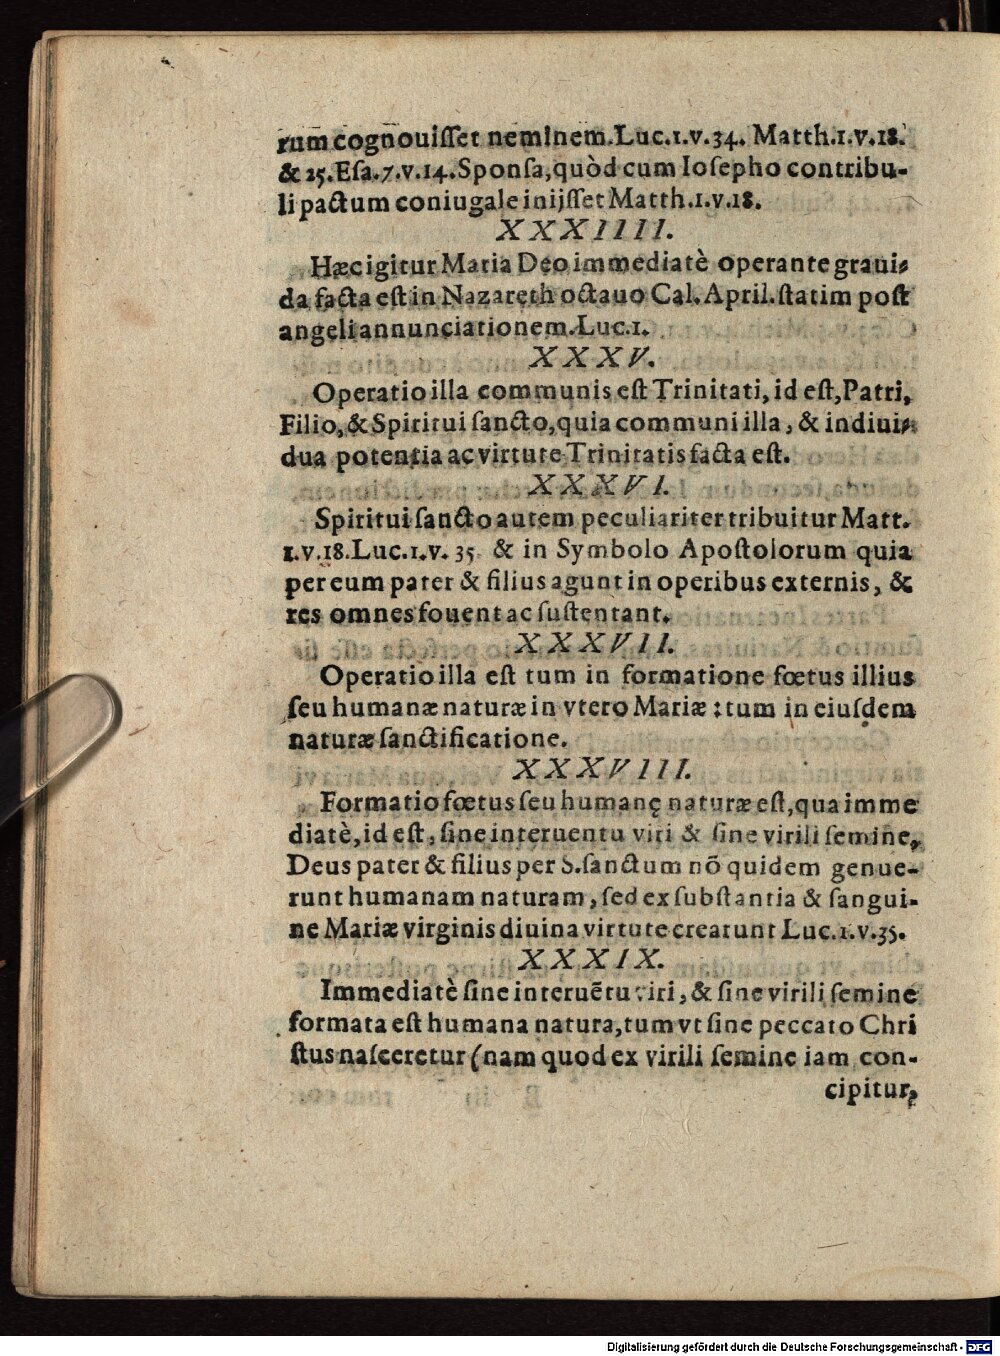 rum cognouiſſet neminem. Luc. 1. v. 34. Matth. 1. v. 18.
& 25. Eſa. 7. v. 14. Sponſa, quòd cum Ioſepho contribu-
li pactum coniugale inijſſet Matth. 1. v. 18.
XXXIIII.
Hæc igitur Maria Deo immediatè operante graui-
da facta eſt in Nazareth octauo Cal. April. ſtatim poſt
angeli annunciationem. Luc. 1.
XXXV.
Operatio illa communis eſt Trinitati, id eſt, Patri,
Filio, & Spiritui ſancto, quia communi illa, & indiui-
dua potentia ac virtute Trinitatis facta eſt.
XXXVI.
Spiritui ſancto autem peculiariter tribuitur Matt.
1. v. 18. Luc. 1. v. 35 & in Symbolo Apoſtolorum quia
per eum pater & filius agunt in operibus externis, &
res omnes fouent ac ſuſtentant.
XXXVII.
Operatio illa eſt tum in formatione fœtus illius
ſeu humanæ naturæ in vtero Mariæ: tum in eiuſdem
naturæ ſanctificatione.
XXXVIII.
Formatio fœtus ſeu humanę naturæ eſt, qua imme
diatè, id eſt, ſine interuentu viri & ſine virili ſemine,
Deus pater & filius per S. ſanctum nõ quidem genue-
runt humanam naturam, ſed ex ſubſtantia & ſangui-
ne Mariæ virginis diuina virtute crearunt Luc. 1. v. 35.
XXXIX.
Immediatè ſine interuẽtu viri, & ſine virili ſemine
formata eſt humana natura, tum vt ſine peccato Chri
ſtus naſceretur (nam quod ex virili ſemine iam con-
cipitur,
Digitalisierung gefördert durch die Deutsche Forschungsgemeinschaft - DFG